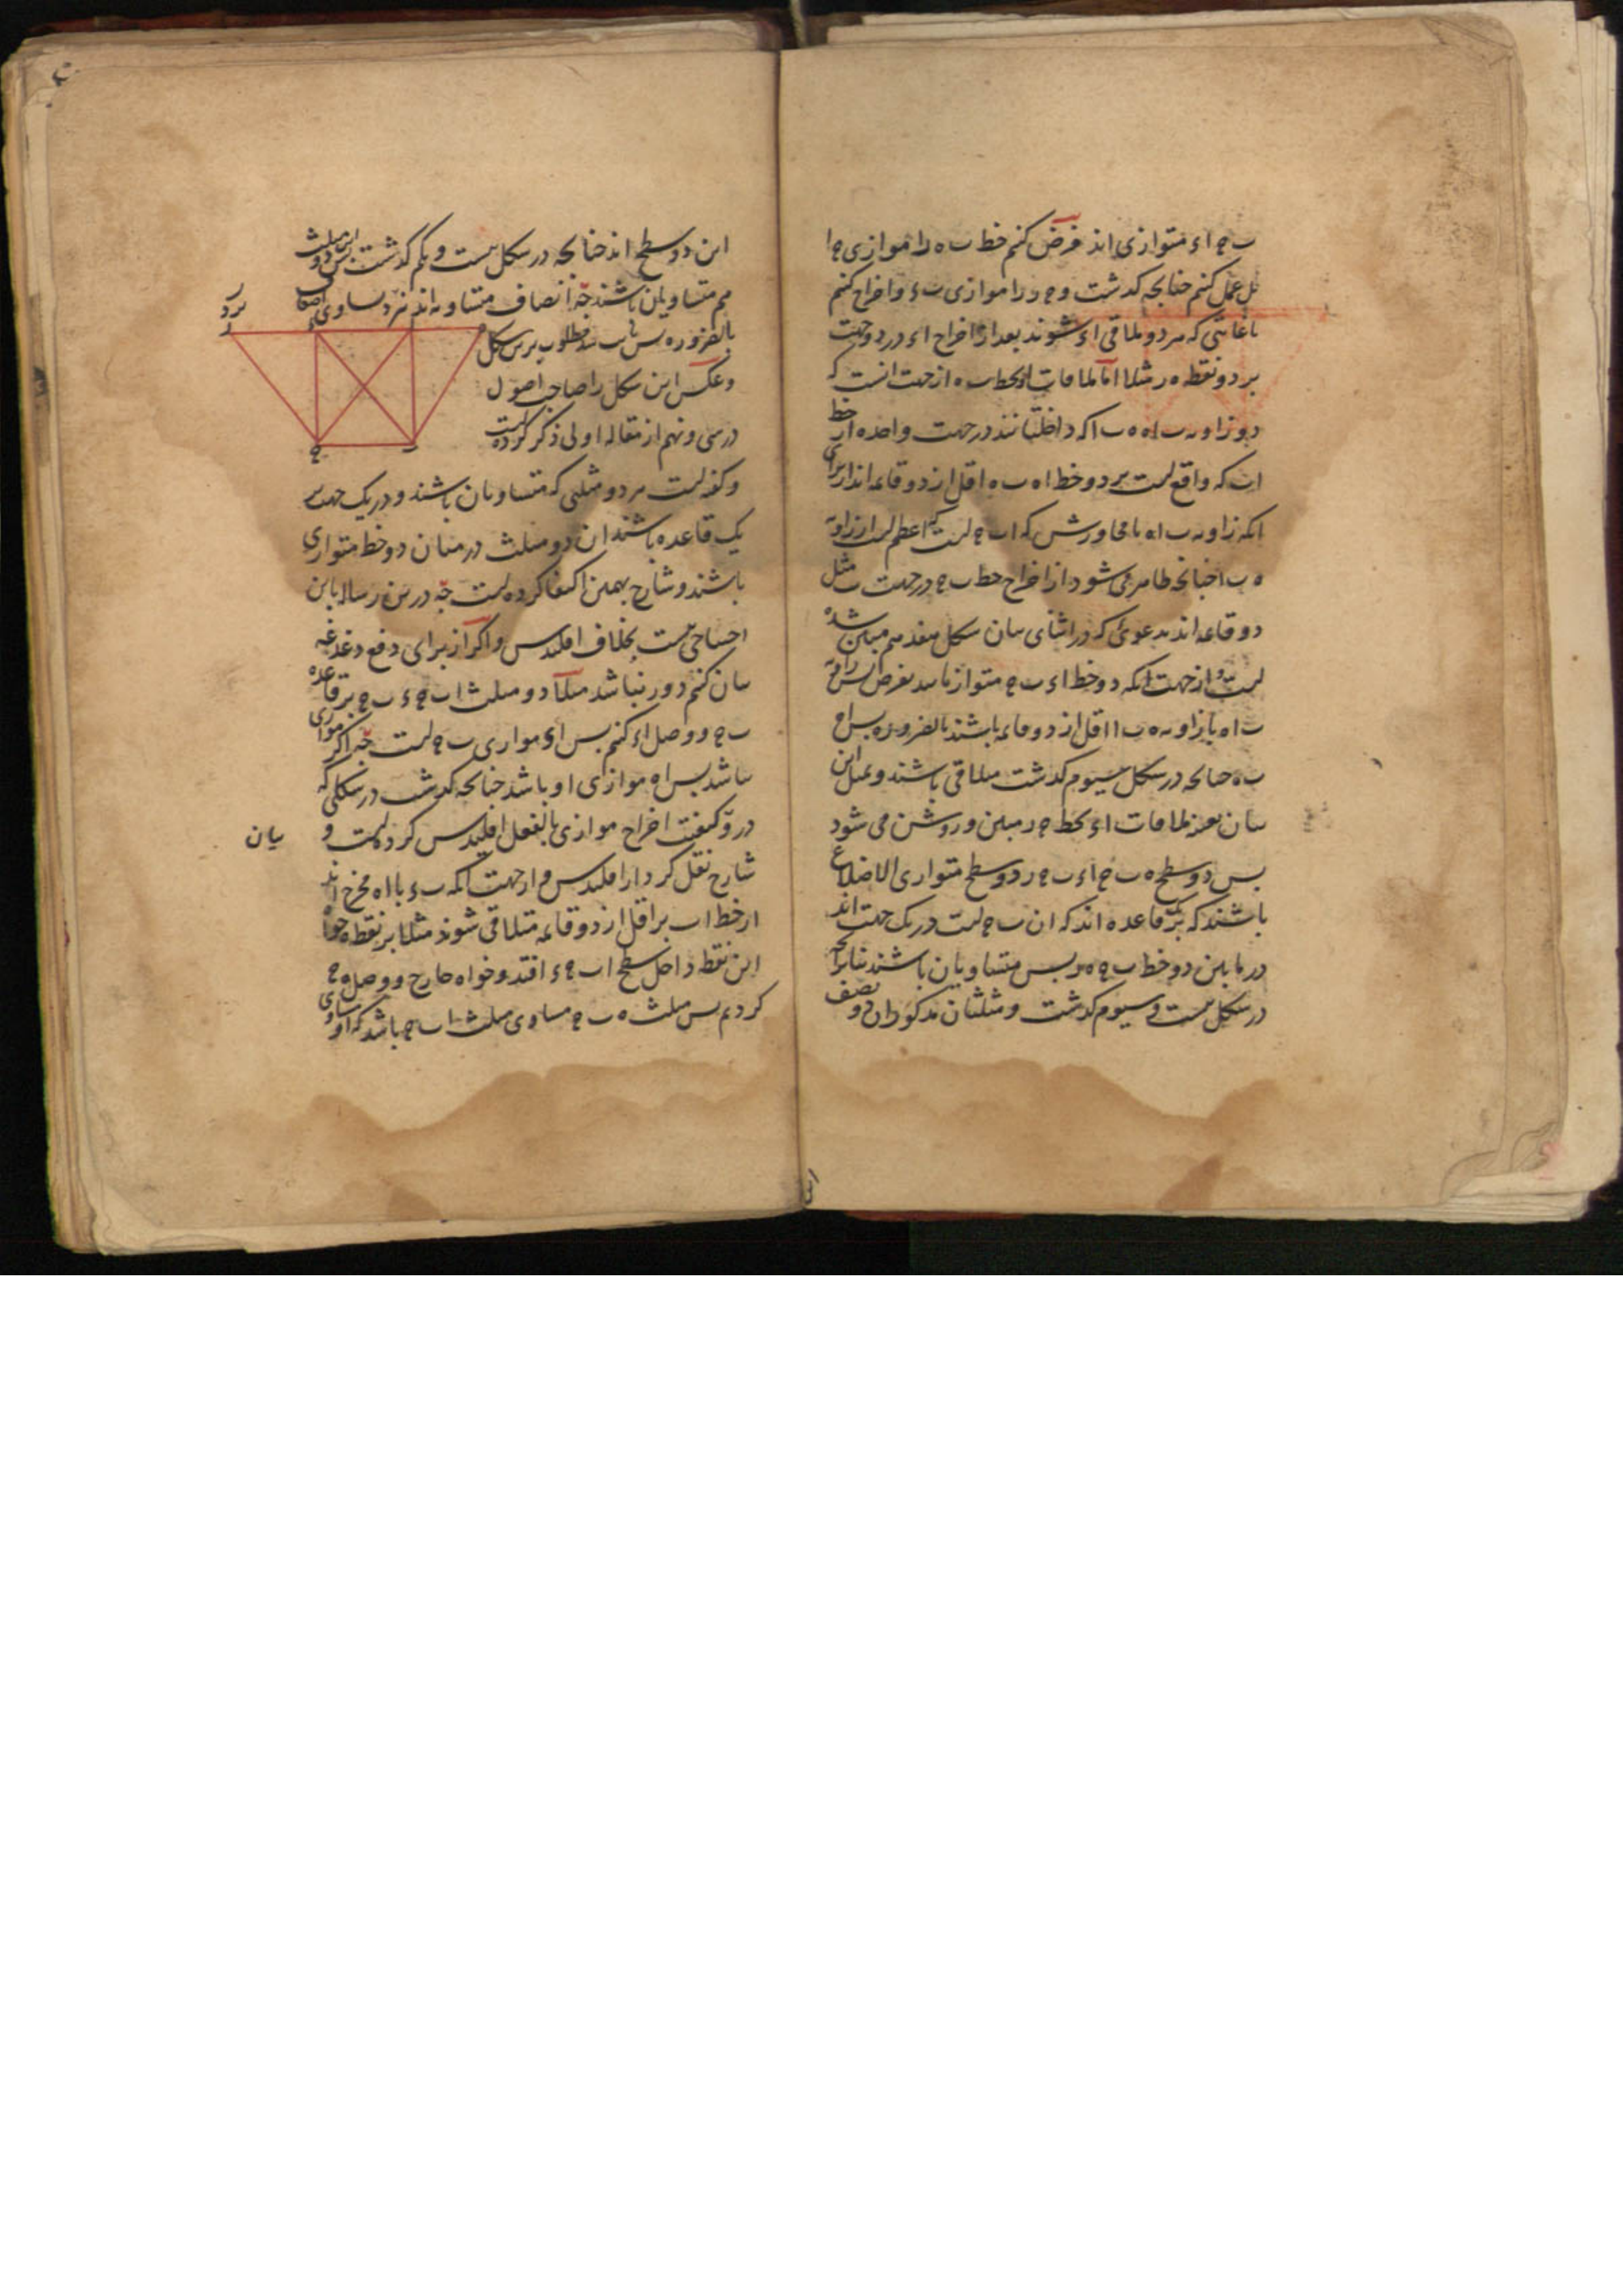 ب ج اء متوازی اند فرض کنم خط ب ه را موازی ج ا
عمل کنم چنانچه کدشت و ج ر را موازی ب ء و اخراج کنم
تا غایتی که هر دو ملاقی اء شوند بعد از اخراج اء در دو جهت
بر دو نقطه ه ر مثلا اما ملاقات اء بخط ب ه از جهت انست که
دو زاویه ب ا ه ه ب ا که داخلتانند در جهت واحده از خط
اب که واقع است بر دو خط ا ه ب ه اقل از دو قائمه اند از برای
انکه زاویه ب ا ه با مجاورش که ا ب ج است که اعظم است از زاویه
ه ب ا چنانچه ظاهر می شود از اخراج خط ب ج در جهت ب مثل
دو قائمه اند بدعوئی که در اثنای بیان شکل هفدهم مبین شده
است و از جهت انکه دو خط اء ب ج متوازیاند بفرض پس زاویه
ب ا ه با زاویه ه ب ا اقل از دو قائمه باشند بالضروره پس ا ه
ب ه چنانچه در شکل سیوم کدشت متلاقی باشند و بمثل این
بیان بعینه ملاقات اء بخط ج ر مبین و روشن می شود
پس دو سطح ه ب ج ا ء ب ج ر دو سطح متوازی الاضلاع
باشند که بر قاعده اند که ان ب ج است در یک جهت اند
در ما بین دو خط ب ج ه ر پس متساویان باشند بنابر انچه
در شکل بیست و سیوم کدشت و مثلثان مذکوران دو نصف
این دو سطح اند چنانچه در شکل بیست و یکم کدشت پس این دو مثلث
هم متساویان باشند چه انصاف متساویه اند نزد تساوی اضعاف
بالضروره پس ثابت شد مطلوب برین شکل
و عکس این شکل را صاحب اصول
در سی و نهم از مقاله اولی ذکر کرده است
و کفته است هر دو مثلثی که متساویان باشند و در یک جهت بر
یک قاعده باشند ان دو مثلث در میان دو خط متوازی
باشند و شارح بهمین اکتفا کرده است چه درین رساله باین
احتیاجی نیست بخلاف اقلیدس و اکر از برای دفع دغدغه
بیان کنم دور نباشد مثلا دو مثلث ا ب ج ء ب ج بر قاعده
ب ج و وصل اء کنم پس اء موازی ب ج است چه اکر موازی
نباشد پس ا ه موازی او باشد چنانچه کدشت در شکلی که
در و کیفیت اخراج موازی بالفعل اقلیدس کرده است و
بیان
شارح نقل کرد از اقلیدس و از جهت انکه ب ء با ا ه مخرج اند
از خط اب بر اقل از دو قائمه متلاقی شوند مثلا بر نقطه ه خواه
این نقطه داخل سطح ا ب ج ء افتد و خواه خارج و وصل ه ج
کردیم پس مثلث ه ب ج مساوی مثلث ا ب ج باشد که او مساوی